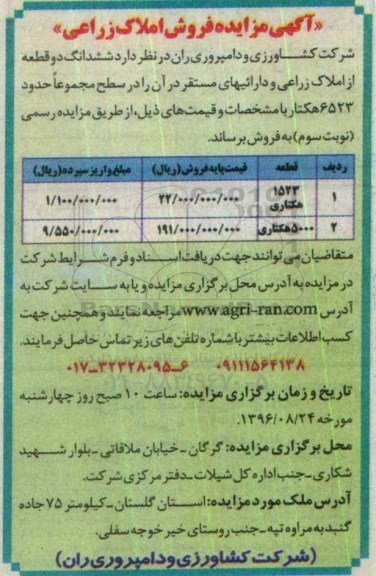 «آگهی مزایده فروش املاک زراعی»
شرکت کشاورزی و دامپروری ران در نظر دارد ششدانگ دو قطعه
از املاک زراعی و دارائیهای مستقر در آن را در سطح مجموعاً حدود
۶۵۲۳هکتار با مشخصات و قیمت‌های ذیل، از طریق مزایده رسمی
(نوبت سوم) به فروش برساند.
ردیف قطعه قیمت پایه فروش (ریال) مبلغ واریز سپرده (ریال)
۱ ۱۵۲۳ هکتاری ۲۲/۰۰۰/۰۰۰/۰۰۰ ۱/۱۰۰/۰۰۰/۰۰۰
۲ ۵۰۰۰هکتاری ۱۹۱/۰۰۰/۰۰۰/۰۰۰ ۹/۵۵۰/۰۰۰/۰۰۰
متقاضیان می توانند جهت دریافت اسناد و فرم شرایط شرکت
در مزایده به آدرس محل برگزاری مزایده و یا به سایت شرکت به
آدرس www.agri-ran.com مراجعه نمایند و همچنین جهت
کسب اطلاعات بیشتر با شماره تلفن های زیر تماس حاصل فرمایند.
۰۹۱۱۱۵۶۴۱۳۸ ۶-۰۱۷-۳۲۳۲۸۰۹۵
تاریخ و زمان برگزاری مزایده: ساعت ۱۰ صبح روز چهارشنبه
مورخه ۱۳۹۶/۰۸/۲۴.
محل برگزاری مزایده: گرگان -خیابان ملاقاتی-بلوار شهید
شکاری-جنب اداره کل شیلات-دفتر مرکزی شرکت.
آدرس ملک مورد مزایده: استان گلستان-کیلومتر ۷۵ جاده
گنبد به مراوه تپه-جنب روستای خیر خوجه سفلی.
(شرکت کشاورزی و دامپروری ران)